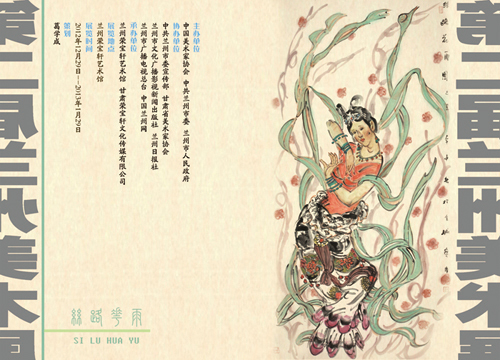 第二届兰州美术
主办单位
中国美术家协会 中共兰州市委 兰州市人民政府
协办单位
中共兰州市委宣传部 甘肃省美术家协会
兰州市文化广播影视新闻出版社 兰州日报社
兰州市广播电视总台 中国兰州网
承办单位
兰州荣宝轩艺术馆 甘肃荣宝轩文化传媒有限公司
展览地点
兰州荣宝轩艺术馆
展览时间
2012年12月29日—2013年1月29日
策划
葛学成
絲路花雨
SI LU HUA YU
第二届兰州美术